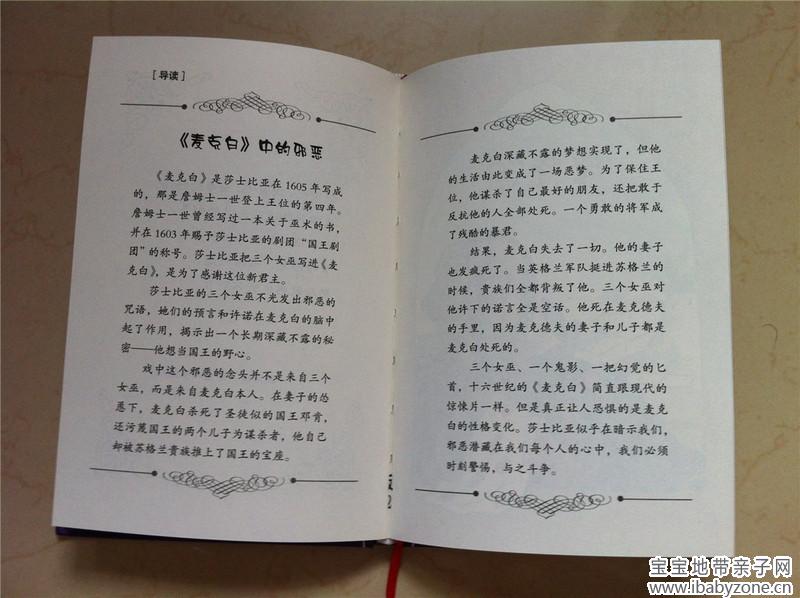 [导读]
《麦克白》中的邪恶
《麦克白》是莎士比亚在1605年写成
的，那是詹姆士一世登上王位的第四年。
詹姆士一世曾经写过一本关于巫术的书，
并在1603年赐予莎士比亚的剧团“国王剧
团”的称号。莎士比亚把三个女巫写进《麦
克白》，是为了感谢这位新君主。
莎士比亚的三个女巫不光发出邪恶的
咒语，她们的预言和许诺在麦克白的脑中
起了作用，揭示出一个长期深藏不露的秘
密——他想当国王的野心。
戏中这个邪恶的念头并不是来自三个
女巫，而是来自麦克白本人。在妻子的怂
恿下，麦克白杀死了圣徒似的国王邓肯，
还污蔑国王的两个儿子为谋杀者，他自己
却被苏格兰贵族推上了国王的宝座。
麦克白深藏不露的梦想实现了，但他
的生活由此变成了一场恶梦。为了保住王
位，他谋杀了自己最好的朋友，还把敢于
反抗他的人全部处死。一个勇敢的将军成
了残酷的暴君。
结果，麦克白失去了一切。他的妻子
也发疯死了。当英格兰军队挺进苏格兰的
时候，贵族们全都背叛了他。三个女巫对
他许下的诺言全是空话。他死在麦克德夫
的手里，因为麦克德夫的妻子和儿子都是
麦克白处死的。
三个女巫、一个鬼影、一把幻觉的匕
首，十六世纪的《麦克白》简直跟现代的
惊悚片一样。但是真正让人恐惧的是麦克
白的性格变化。莎士比亚似乎在暗示我们，
邪恶潜藏在我们每个人的心中，我们必须
时刻警惕，与之斗争。
2
宝宝地带亲子网
www.ibabyzone.cn